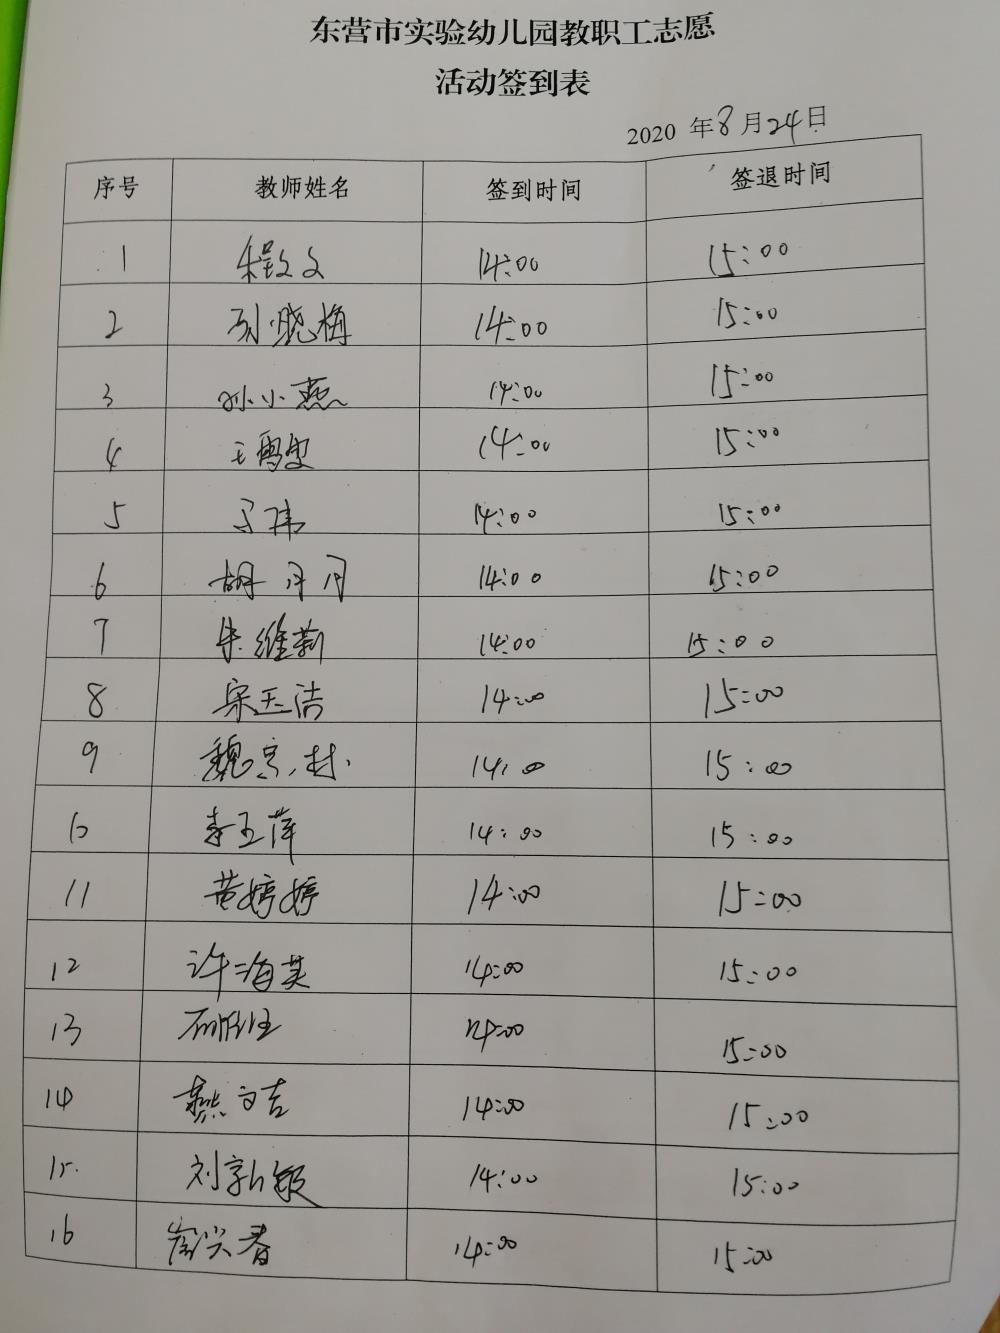 东营市实验幼儿园教职工志愿
活动签到表
2020 年8月24日
序号 教师姓名 签到时间 签退时间
1 程文文 14:00 15:00
2 孙晓梅 14:00 15:00
3 孙小燕 14:00 15:00
4 王雪雯 14:00 15:00
5 马伟 14:00 15:00
6 胡月月 14:00 15:00
7 朱维新 14:00 15:00
8 宋玉洁 14:00 15:00
9 魏 14:00 15:00
10 李玉萍 14:00 15:00
11 黄婷婷 14:00 15:00
12 许海英 14:00 15:00
13 14:00 15:00
14 燕文吉 14:00 15:00
15 刘新颖 14:00 15:00
16 14:00 15:00